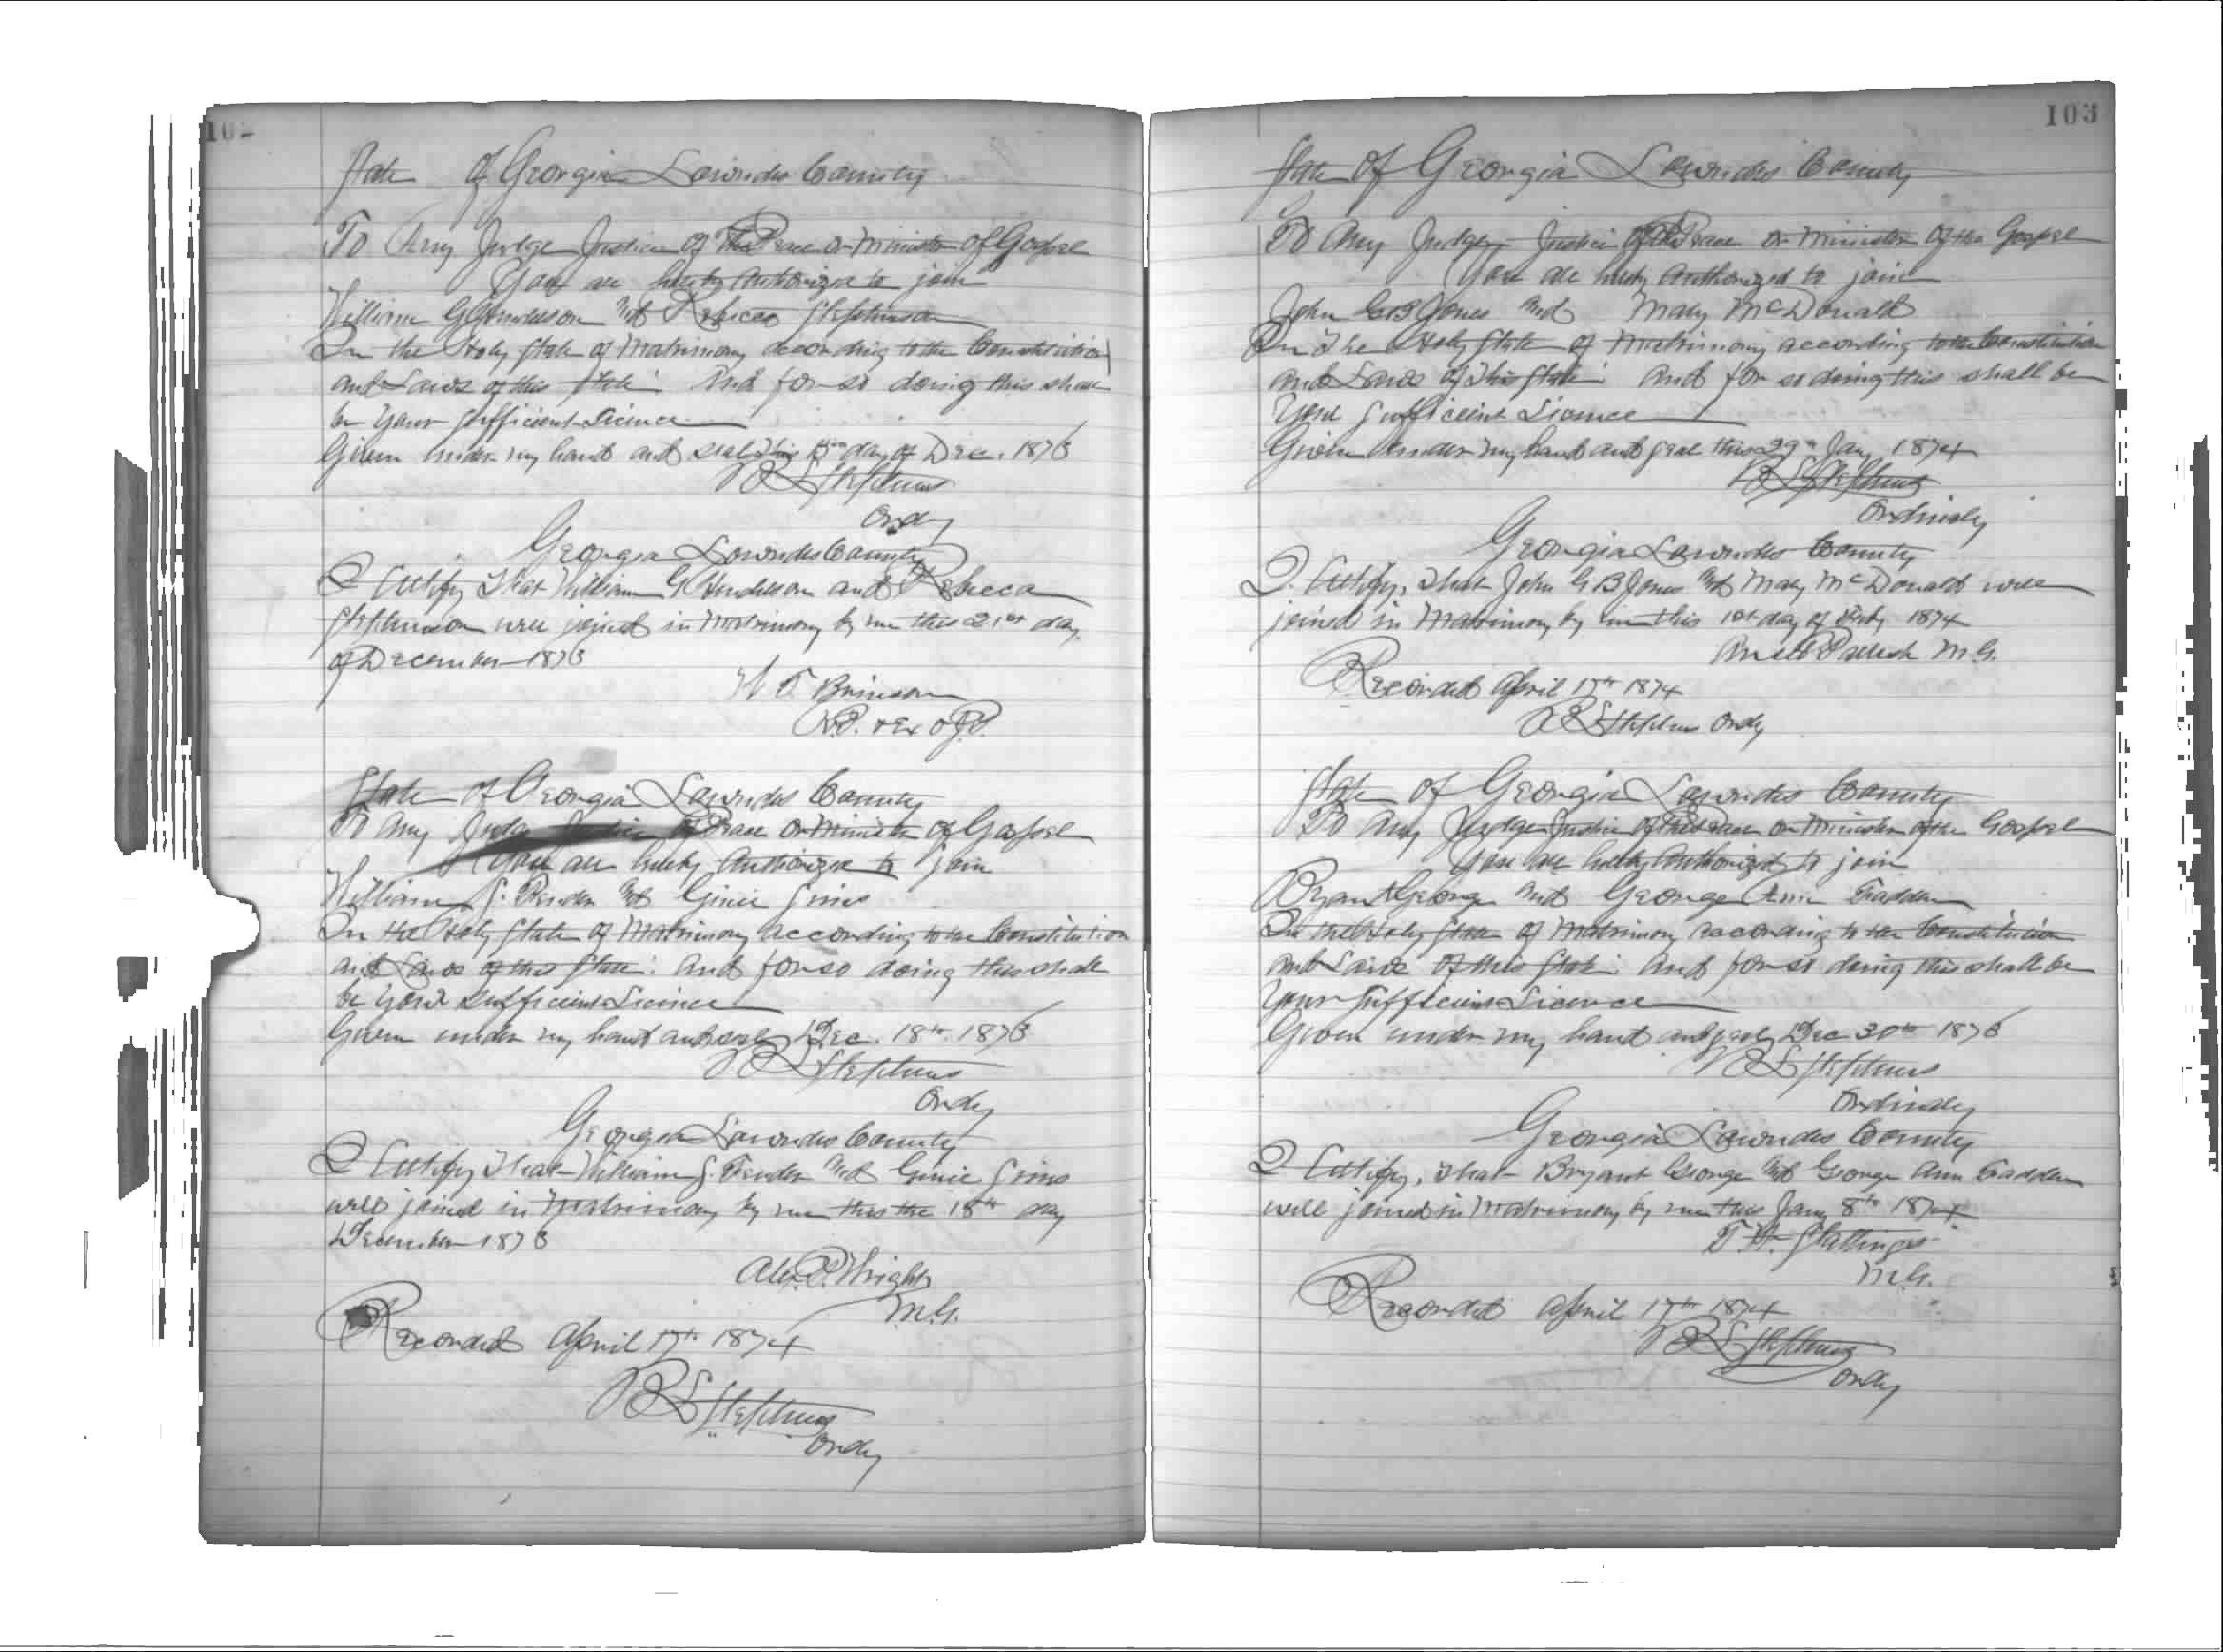 102
State of Georgia Lowndes County
To Any Judge Justice of the Peace or Minister of Gospel
You are hereby Authorized to join
William G Henderson and Rebecca Stephenson
In the Holy State of Matrimony according to the Constitution
and Laws of this State: And for so doing this shall
be Your Sufficient Licence
Given under my hand and seal this day of Dec. 1873
Stephens
Ordy
Georgia Lowndes County
I Certify That William G Henderson and Rebecca
Stephenson were joined in Matrimony by me this 21st day
of December 1873
Brinson
N.P. & Ex o J.P.
State of Georgia Lowndes County
To Any Judge Justice of Peace or Minister of Gospel
You are hereby Authorized to join
William J. and Ginie Sims
In the Holy State of Matrimony according to the Constitution
and Laws of this State: And for so doing this shall
be Your Sufficient Licence
Given under my hand and seal Dec. 18th 1873
Stephens
Ordy
Georgia Lowndes County
I Certify That William J. and Ginie Sims
were joined in Matrimony by me this the 18th day
December 1873
Alex. P. Wright
M.G.
Recorded April 17th 1874
Stephens
Ordy
103
State of Georgia Lowndes County
To Any Judge, Justice of the Peace or Minister of the Gospel
You are hereby Authorized to join
John G B Jones and Mary McDonald
In The Holy State of Matrimony according to the Constitution
and Laws of This State: And for so doing this shall be
Your Sufficient Licence
Given Under my hand and seal this 29th Jany 1874
Stephens
Ordinary
Georgia Lowndes County
I Certify, That John G B Jones and Mary McDonald were
joined in Matrimony by me this 1st day of Feby 1874
M.G.
Recorded April 17th 1874
Stephens Ordy
State of Georgia Lowndes County
To Any Judge Justice of the Peace or Minister of the Gospel
You are hereby Authorized to join
Bryant George and George Ann
In the Holy State of Matrimony according to the Constitution
and Laws of this State: And for so doing this shall be
Your Sufficient Licence
Given under my hand and seal, Dec 30th 1873
Stephens
Ordinary
Georgia Lowndes County
I Certify, That Bryant George and George Ann
were joined in Matrimony by me this Jany 8th 1874
Stallings
M.G.
Recorded April 17th 1874
Stephens
Ordy